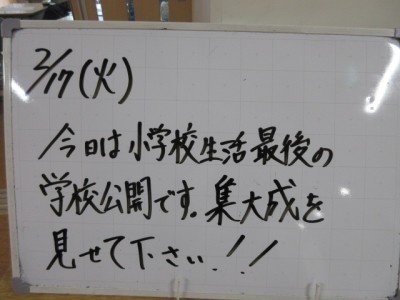 2/17(火)
今日は小学校生活最後の
学校公開です。集大成を
見せて下さい!!